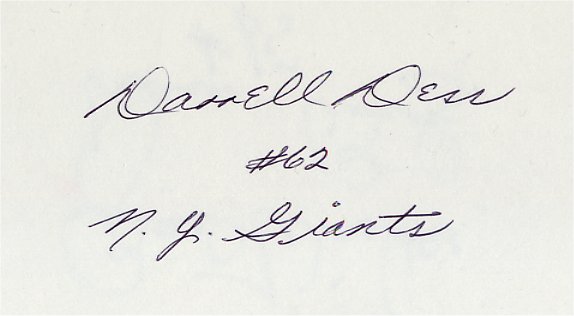 Darrell Dess
#62
N. Y. Giants